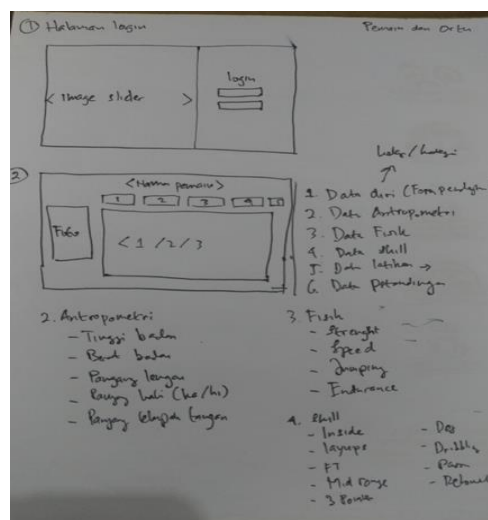 ① Halaman login
Pemain dan Ortu
< Image slider >
login
②
<Nama pemain>
1 2 3 4
Foto
< 1 / 2 / 3
1. Data diri (Form
2. Data Antropometri
3. Data Fisik
4. Data skill
5. Data latihan →
6. Data Pertandingan
2. Antropometri
- Tinggi badan
- Berat badan
- Panjang lengan
- Panjang kaki (ka/ki)
- Panjang telapak tangan
3. Fisik
- Strenght
- Speed
- Jumping
- Endurance
4. Skill
- Inside
- layups
- FT
- Mid range
- 3 Point
- Def
- Dribble
- Pass
- Rebound